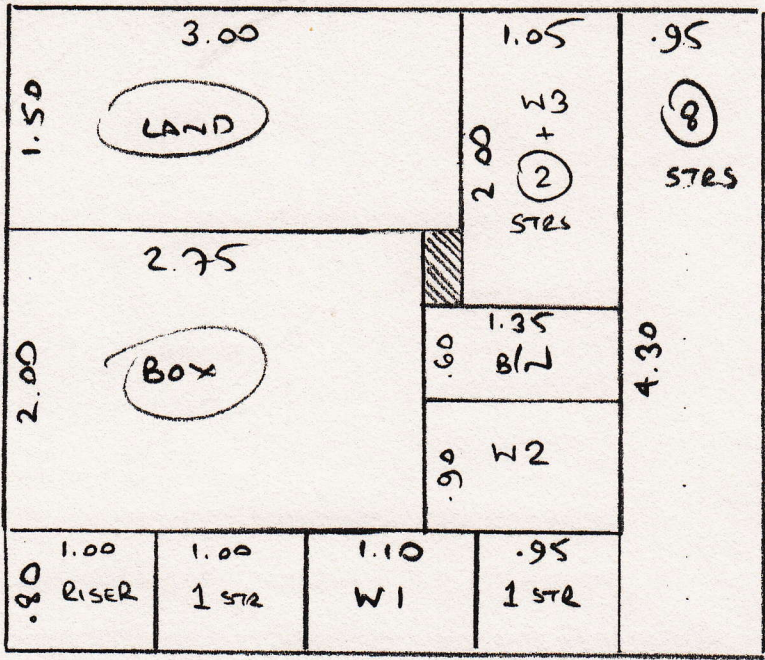 3.00
1.50
LAND
1.05
2 00
W3
+
2
STRS
.95
8
STRS
4.30
2.75
2.00
BOX
1.35
.60
B/N
.90
W2
1.00
.80
RISER
1.00
1 STR
1.10
W1
.95
1 STR